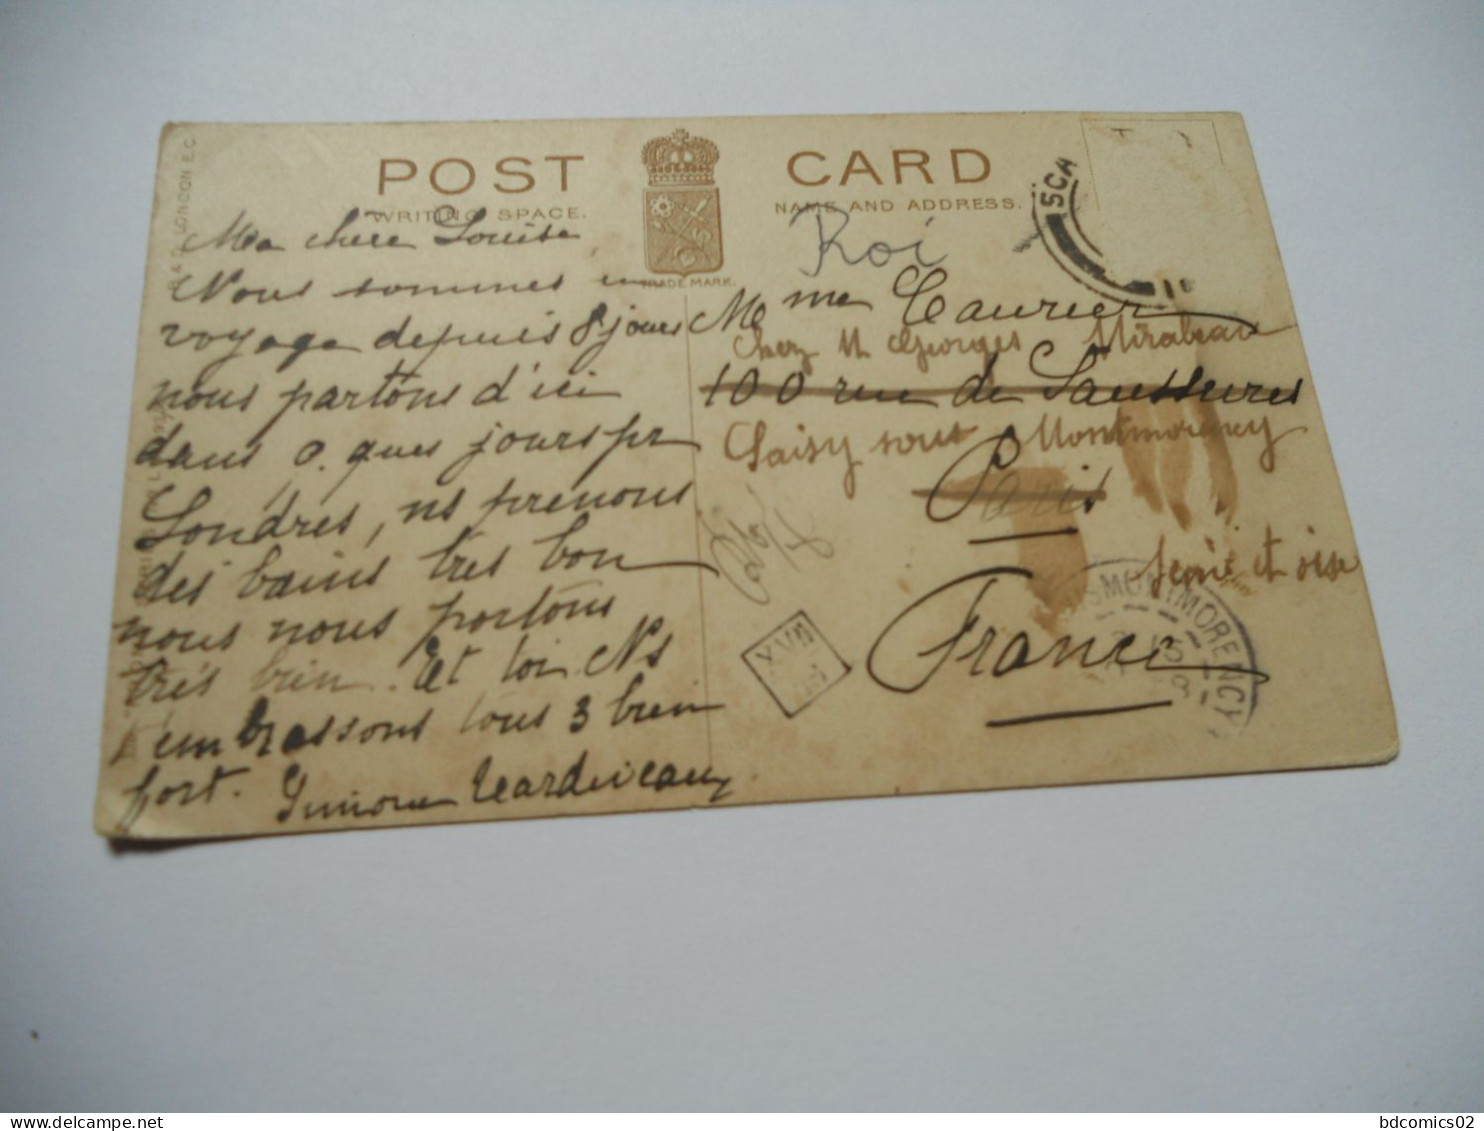 POST CARD
WRITING SPACE.
NAME AND ADDRESS.
TRADE MARK.
LONDON E.C.
Ma chère Louise
Nous sommes en
voyage depuis 8 jours
nous partons d'ici
dans q. ques jours pr
Londres, ns prenons
des bains très bon
nous nous portons
très bien. Et toi Ns
t'embrassons tous 3 bien
fort. Simone
Roi
Mme Caurier
Chez M Georges Mirabeau
100 rue de Saussures
Soisy sous Montmorency
Paris
Seine et oise
France
XVII
SCA
MONTMORENCY
bdcomics02